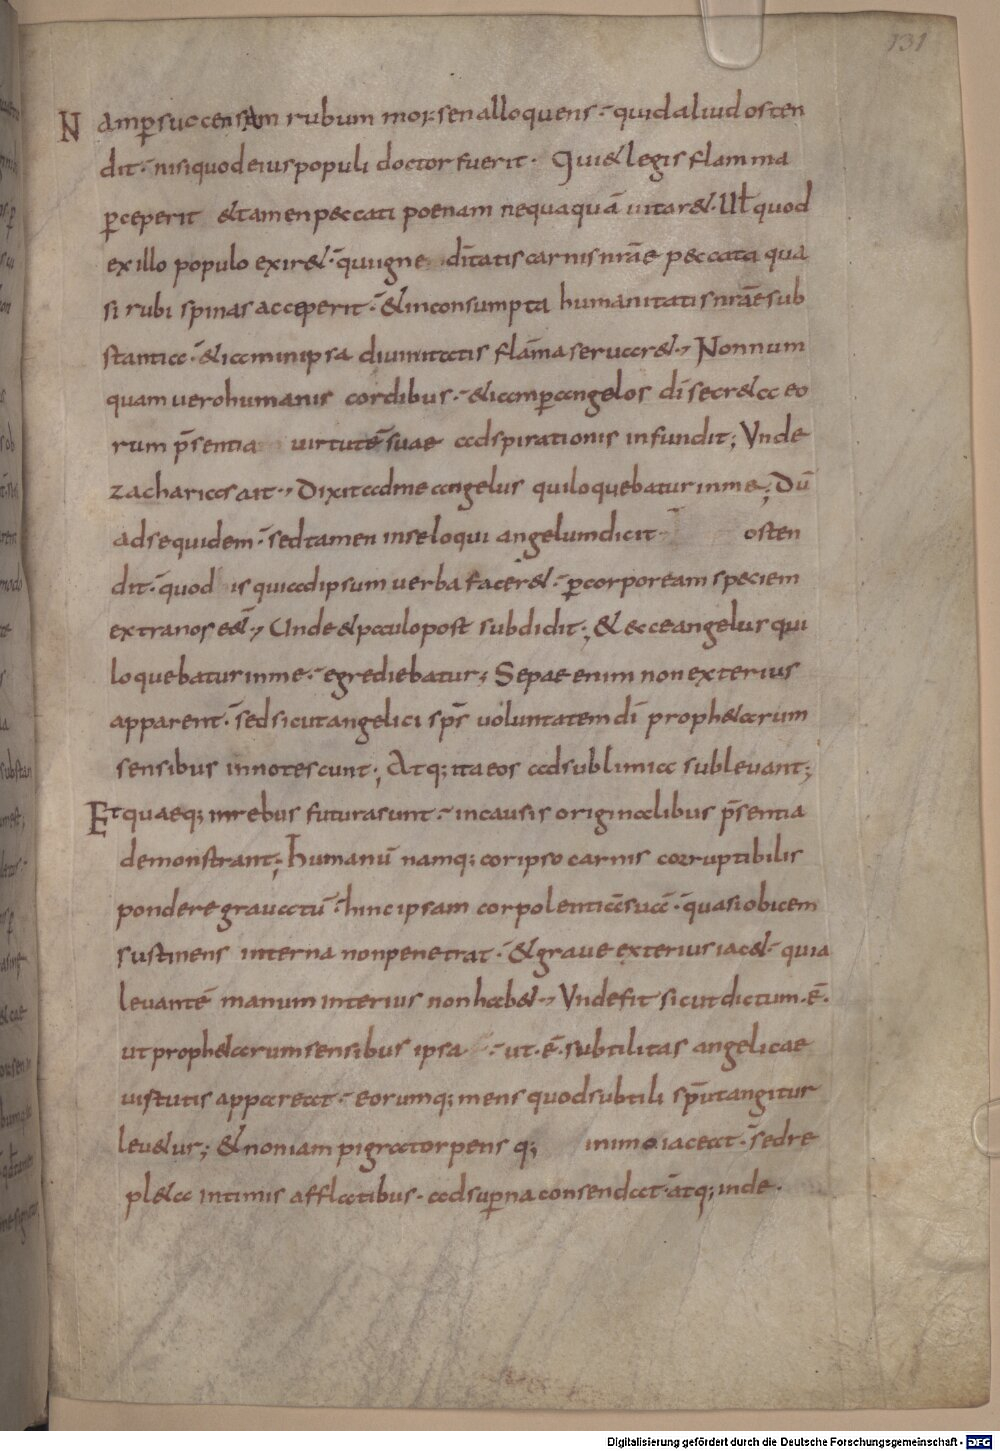 131
Namp̱ succensam rubum morsen alloquens quid aliud osten
dit nisi quod eius populi doctor fuerit. Qui & legis flamma
p̱ceperit & tamen peccati poenam nequaquā uitar&. Ul̄ quod
ex illo populo exir&. qui igne ditatis carnis nr̄ae peccata qua
si rubi spinas acceperit & inconsumpta humanitatis nr̄ae sub
stantia. & iam in ipsa diuinitatis flāma seruar&. Nonnum
quam uero humanis cordibus & iam p̱ angelos dī secr&a eo
rum p̄sentia uirtutē suae adspirationis infundit; Unde
zacharias ait. Dixit ad me angelus qui loquebatur in me; Dū
ad se quidem sed tamen in se loqui angelum dicit osten
dit quod is qui ad ipsum uerba facer& p̱ corpoream speciem
extra nos e&. Unde & paulo post subdidit; & ecce angelus qui
loquebatur in me egrediebatur; Sepae enim non exterius
apparent sed sicut angelici sps̄ uoluntatem dī proph&arum
sensibus innotescunt; Atq; ita eos ad sublimia subleuant;
Et quaeq; in rebus futura sunt in causis originalibus p̄sentia
demonstrant; humanū namq; cor ipso carnis corruptibilis
pondere grauatū. hinc ipsam corpolentiā suā quasi obicem
sustinens interna non penetrat. & graue exterius iac& quia
leuantē manum interius non hab&. Unde fit sicut dictum .ē.
ut proph&arum sensibus ipsa ut .ē. subtilitas angelicae
uistutis appareat eorumq; mens quod subtili spū tangitur
leu&ur; & non iam pigra torpens q; in imo iaceat sed re
pl&a intimis afflatibus ad sup̱na consendat atq; inde.
Digitalisierung gefördert durch die Deutsche Forschungsgemeinschaft - DFG